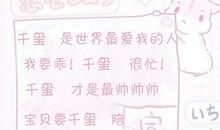 千玺 是世界最爱我的人
我要乖!千玺 很忙!
千玺 才是最帅帅帅
宝贝要千玺 陪
いち